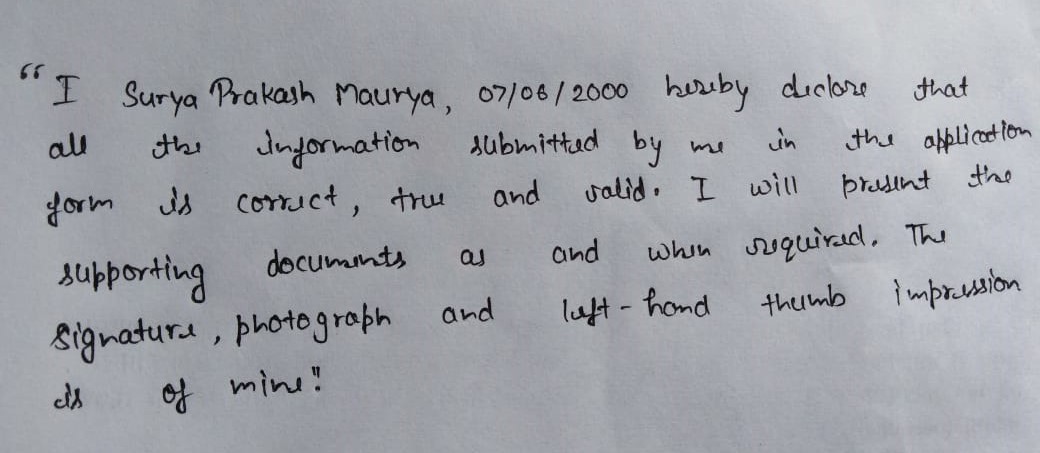 "I Surya Prakash Maurya, 07/06/2000 hereby declare that
all the information submitted by me in the application
form is correct, true and valid. I will present the
supporting documents as and when required. The
Signature, photograph and left-hand thumb impression
is of mine."